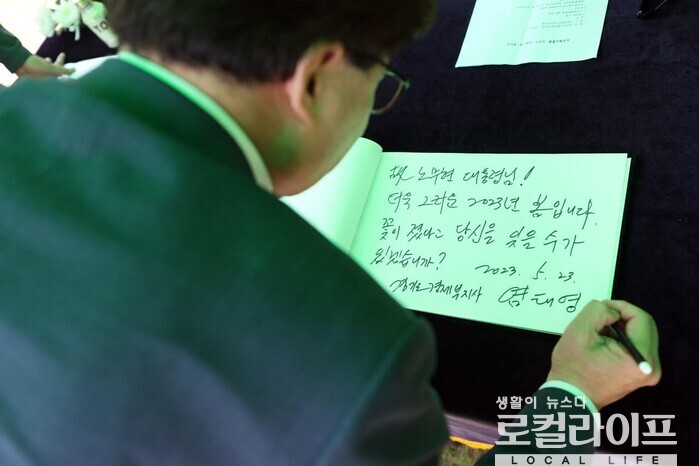 故 노무현 대통령님!
더욱 그리운 2023년 봄입니다.
꽃이 졌다고 당신을 잊을 수가
있겠습니까?
2023. 5. 23.
경기도 경제부지사 염태영
생활이 뉴스다
로컬라이프
LOCAL LIFE